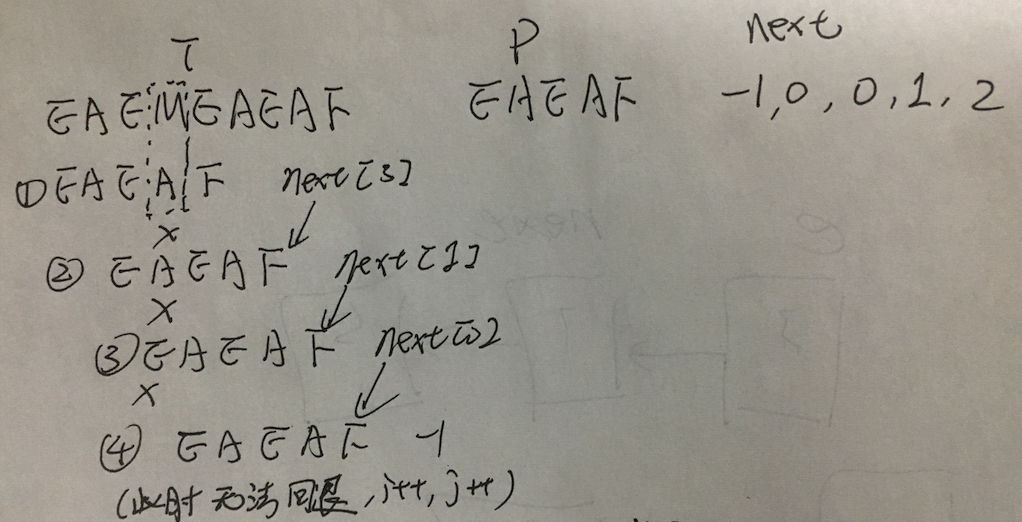 T P next
EAEMEAEAF EAEAF -1,0,0,1,2
①EAEAF next[3]
×
② EAEAF next[1]
×
③EAEAF next[0]
×
④ EAEAF -1
(此时无法回退,i++,j++)